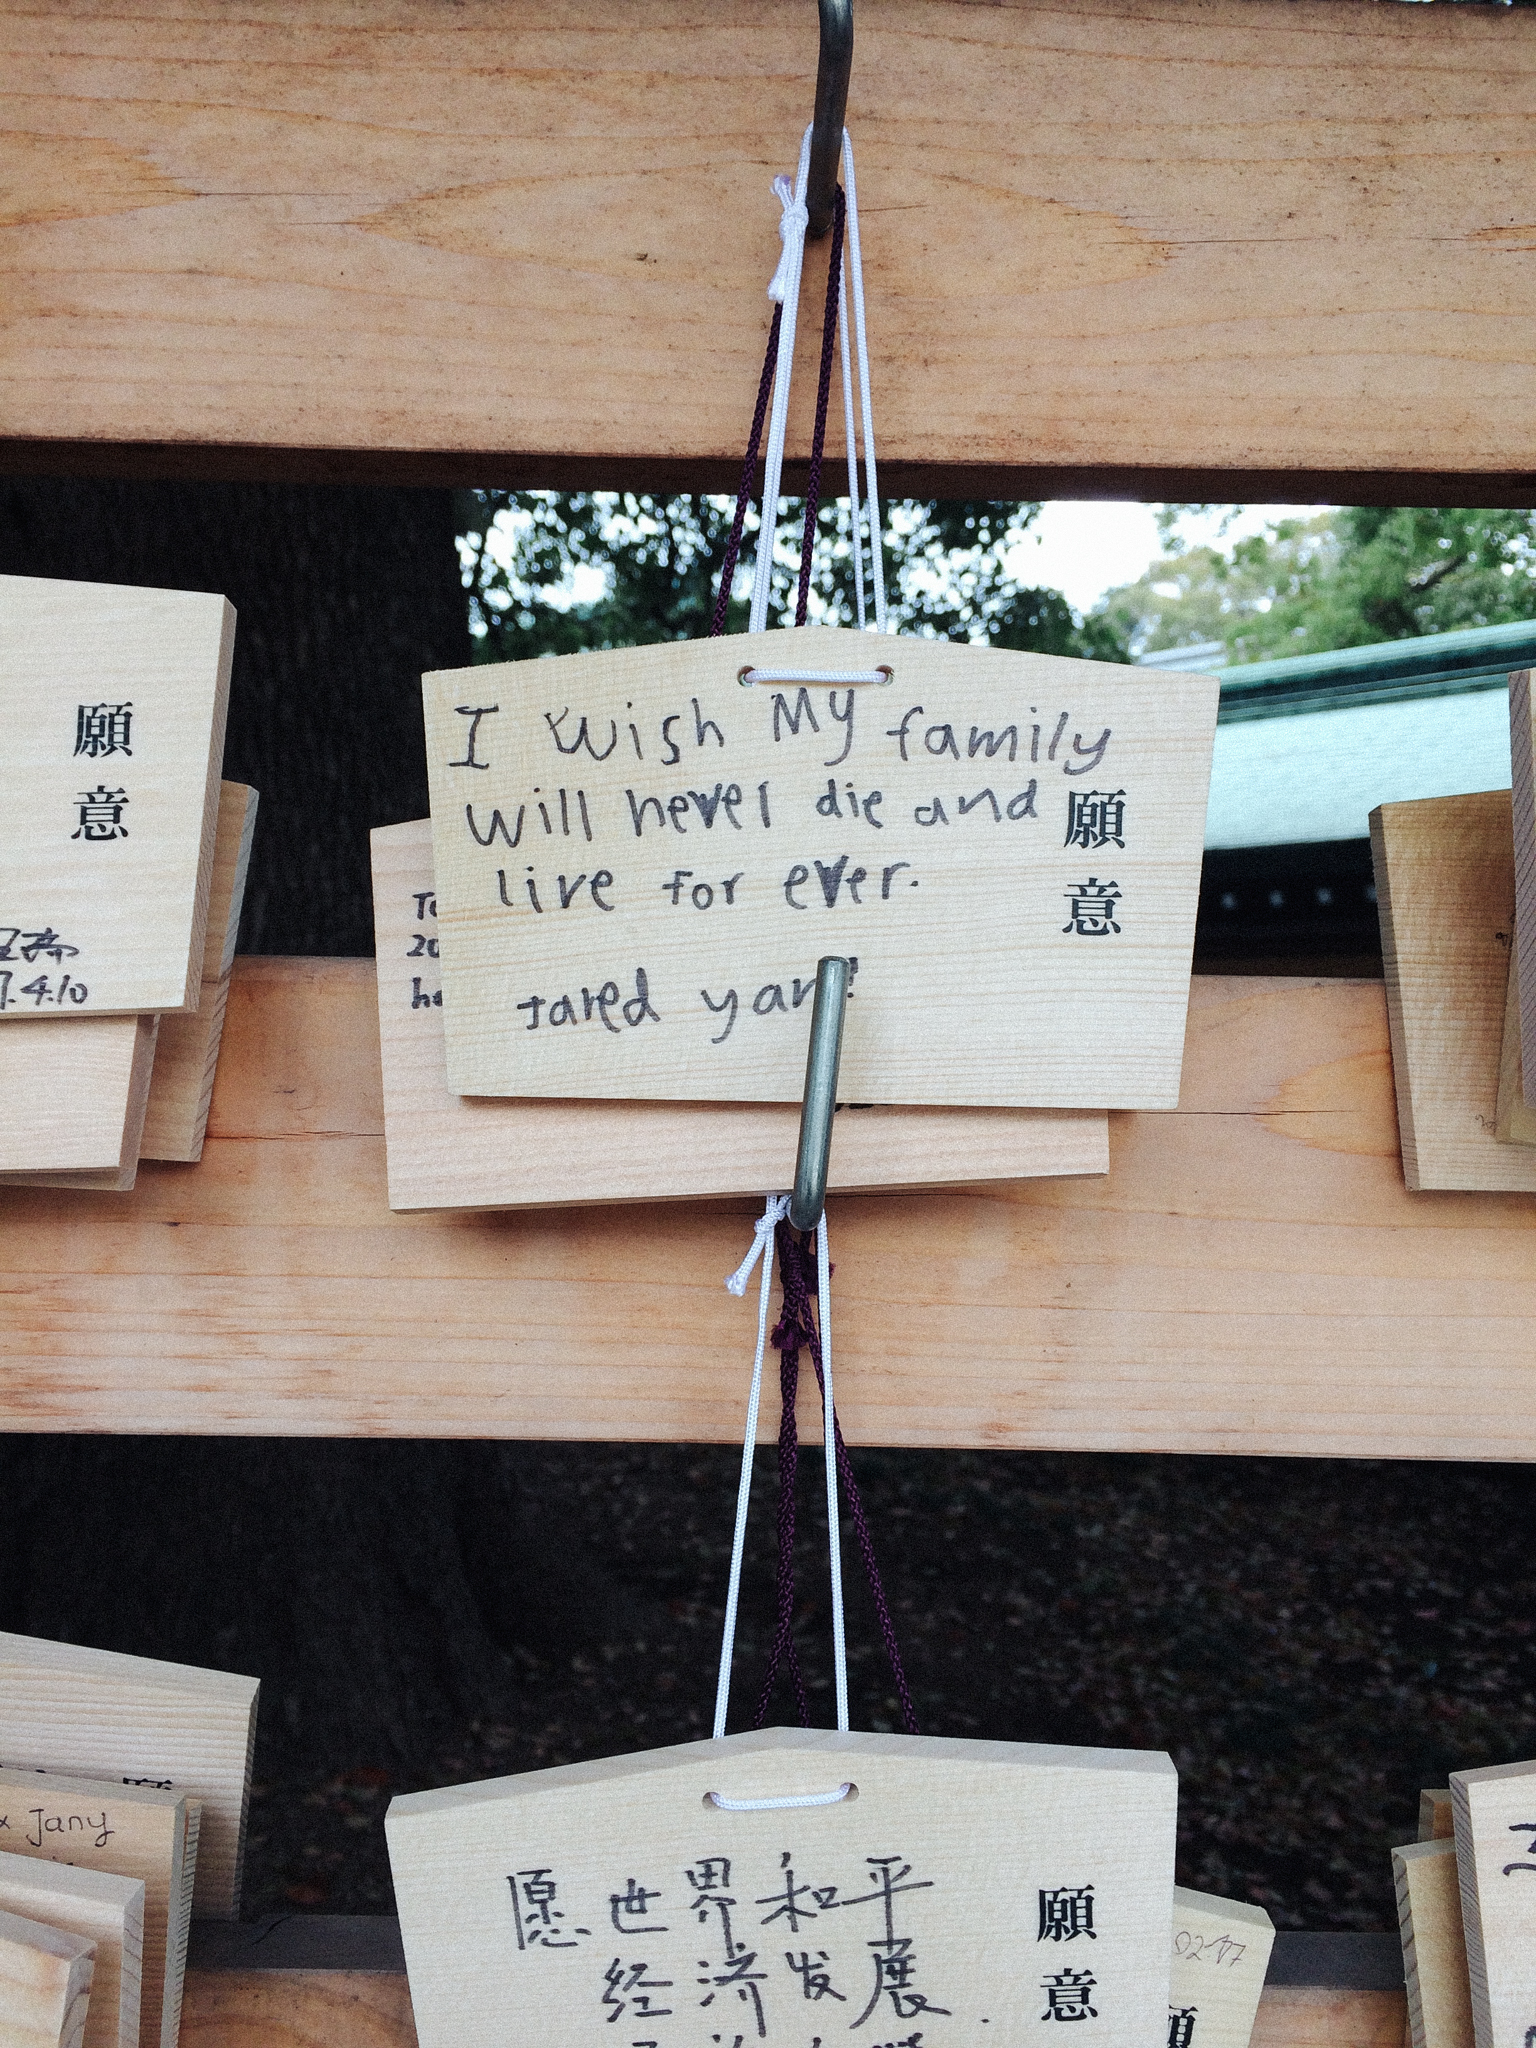 願
意
4.10
I Wish My family
Will never die and
live for ever.
願
意
Jared yan!
20
Jany
愿世界和平
经济发展
願
意
願